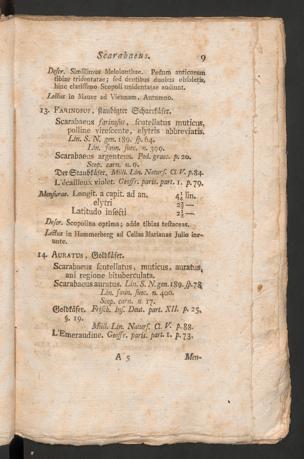 Scarabaeus. 9
Descr. Simillimus Melolonthae. Pedum anticorum
tibiae tridentatae; sed dentibus duobus obsoletis,
hinc clarissimo Scopoli unidentatae audiunt.
Lectus in Mauer ad Viennam, Autumno.
13. FARINOSUS, staubigter Scharrkäfer.
Scarabaeus farinosus, scutellatus muticus,
polline virescente, elytris abbreviatis.
Lin. S. N. gen. 189. sp. 64.
Lin. faun. suec. n. 399.
Scarabaeus argenteus. Pod. graec. p. 20.
Scop. carn. n. 6.
Der Staubkäfer. Müll. Lin. Naturs. Cl. V. p. 84.
L'écailleux violet. Geoffr. paris. part. 1. p. 79.
Mensurae. Longit. a capit. ad an. 4¼ lin.
elytri
Latitudo insecti
Descr. Scopolina optima; adde tibias testaceas.
Lectus in Hammerberg ad Cellas Marianas Julio ineunte.
14. AURATUS, Goldkäfer.
Scarabaeus scutellatus, muticus, auratus,
ani regione bituberculata.
Scarabaeus auratus. Lin. S. N. gem. 189. sp. 78.
Lin. faun. suec. n. 400.
Scop. carn. n. 17.
Goldkäfer. Frisch. Ins. Deut. part. XII. p. 25.
§. 19.
Müll. Lin. Naturs. Cl. V. p. 88.
L'Emeraudine. Geoffr. paris. part. 1. p. 73.
A 5 Men-